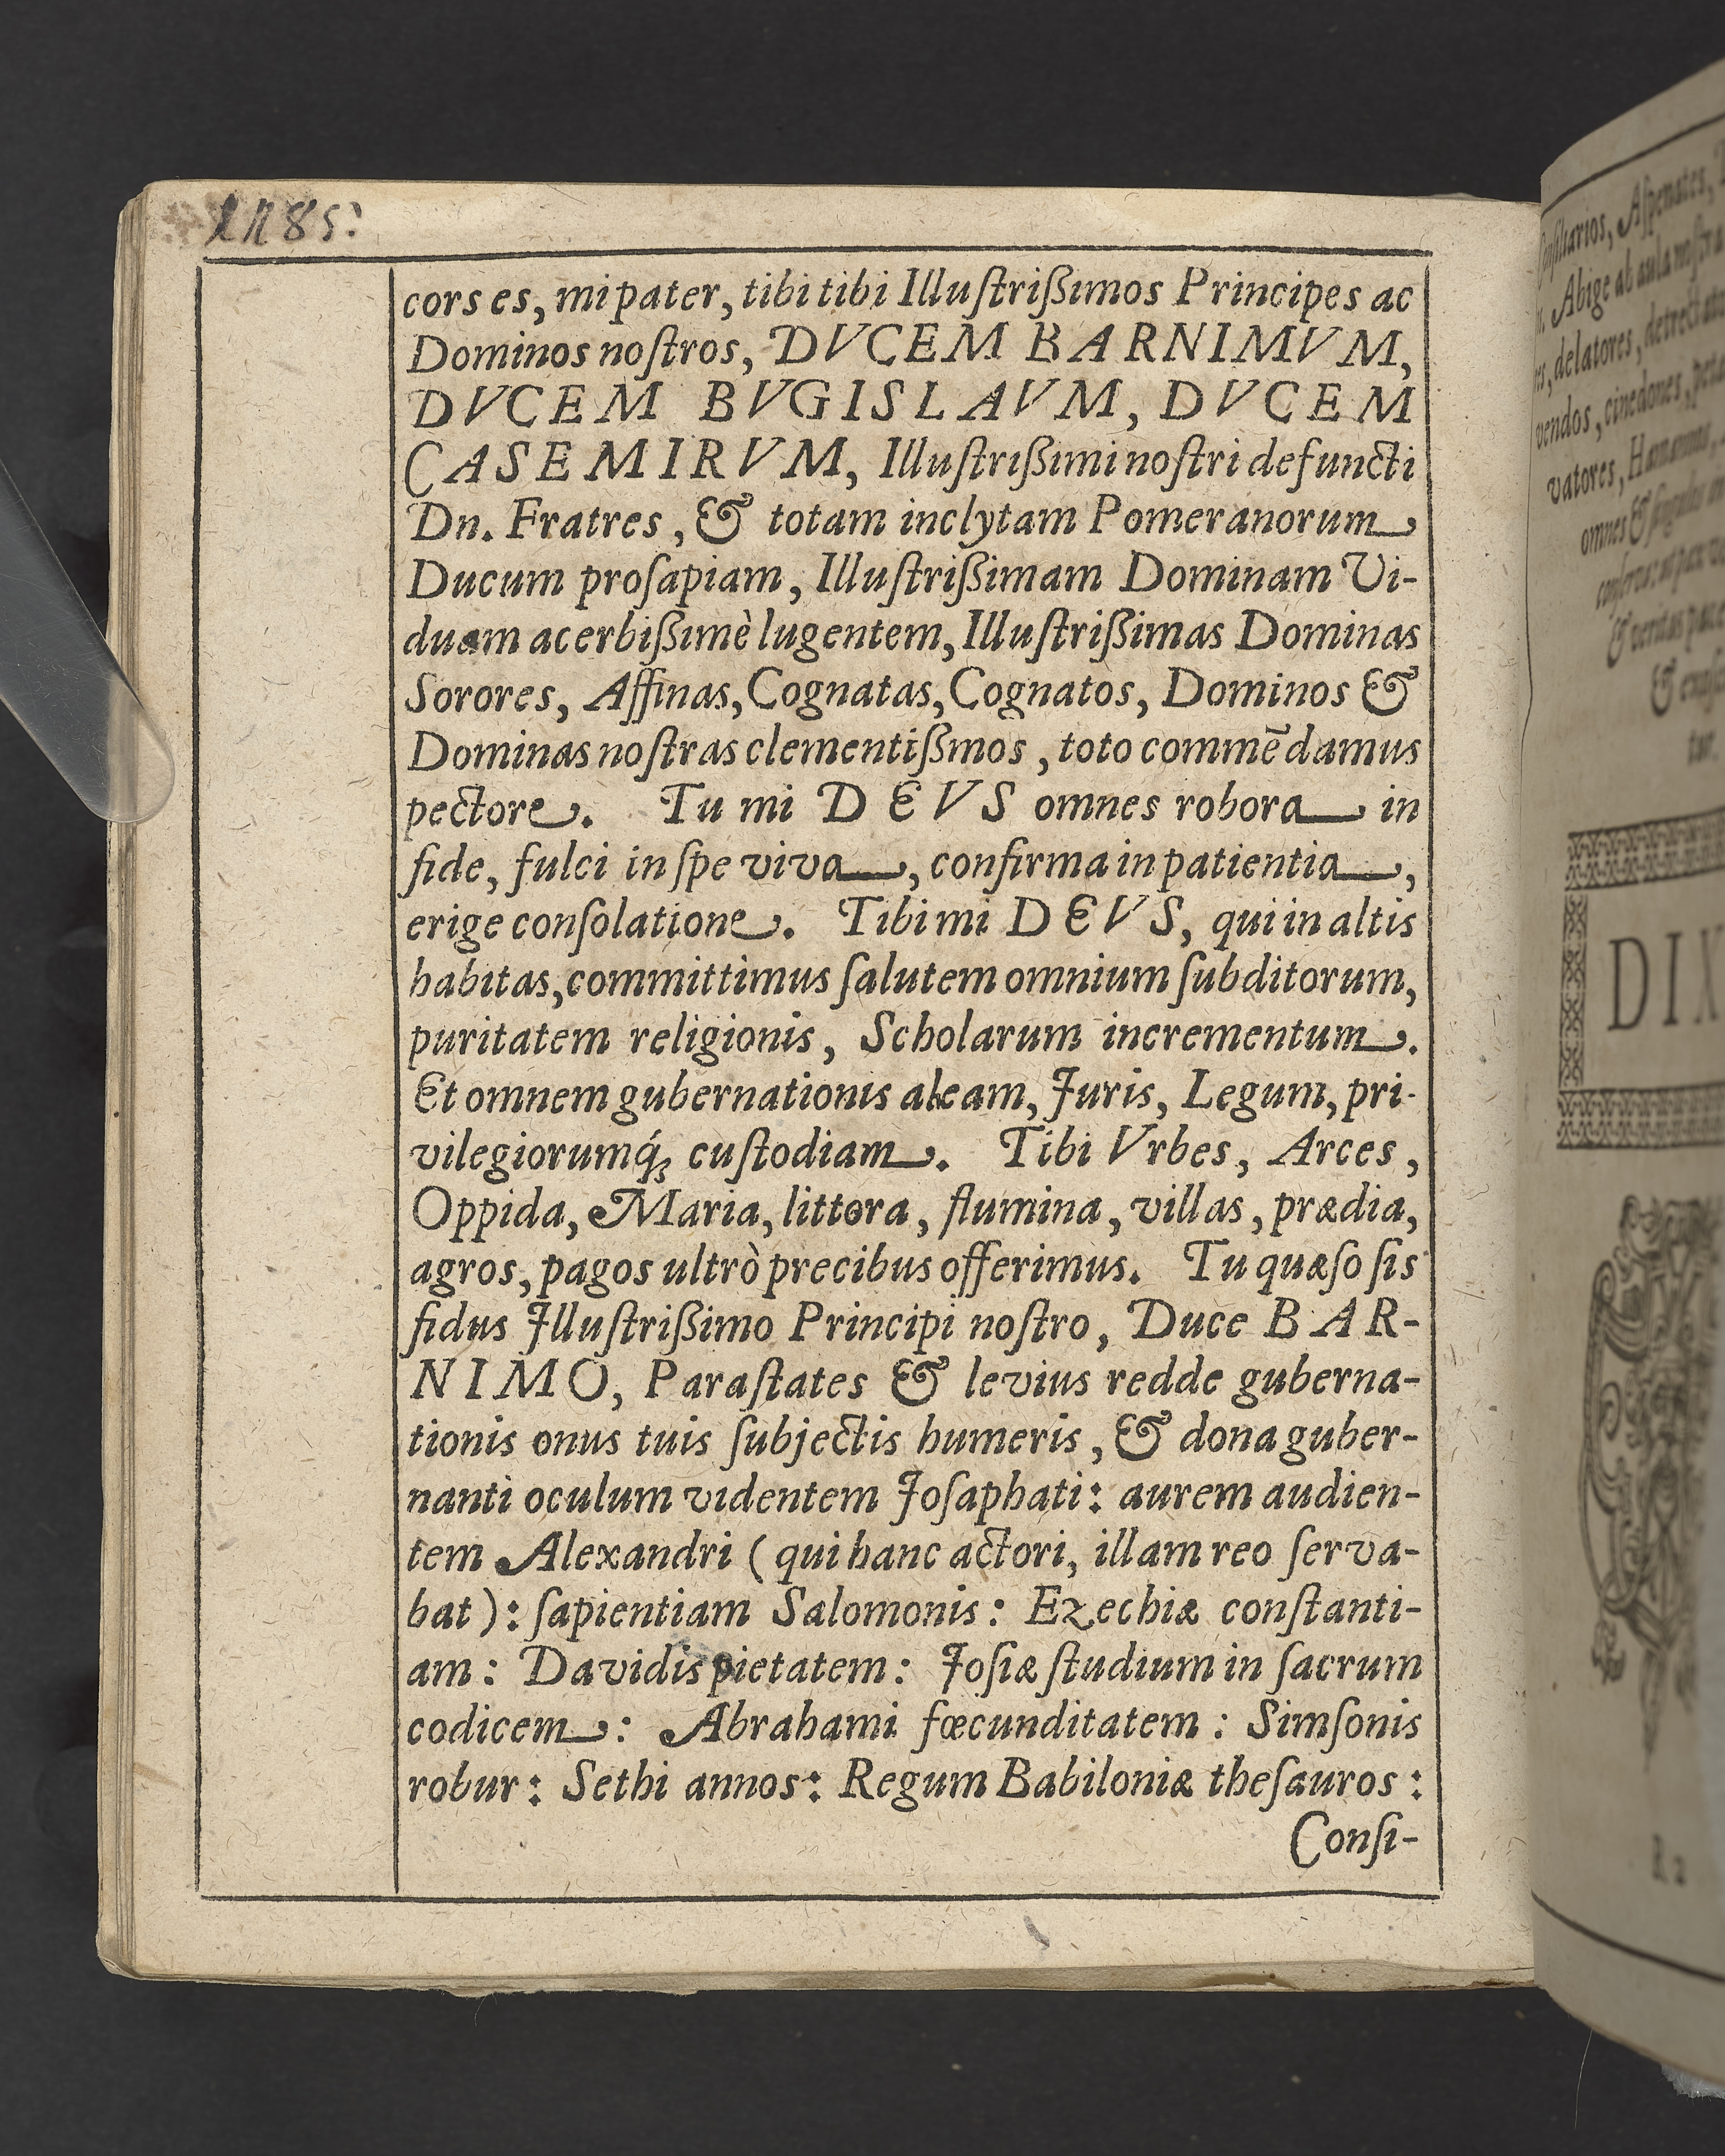 1185:
cors es, mi pater, tibi tibi Illuſtrißimos Principes ac
Dominos noſtros, DVCEM BARNIMVM,
DVCEM BVGISLAVM, DVCEM
CASEMIRVM, Illuſtrißimi noſtri defuncti
Dn. Fratres, & totam inclytam Pomeranorum
Ducum proſapiam, Illuſtrißimam Dominam Vi-
duam acerbißimè lugentem, Illuſtrißimas Dominas
Sorores, Affinas, Cognatas, Cognatos, Dominos &
Dominas noſtras clementißmos, toto commēdamus
pectore. Tu mi DEVS omnes robora in
fide, fulci in ſpe viva, confirma in patientia,
erige conſolatione. Tibi mi DEVS, qui in altis
habitas, committimus ſalutem omnium ſubditorum,
puritatem religionis, Scholarum incrementum.
Et omnem gubernationis aleam, Juris, Legum, pri-
vilegiorumq́; cuſtodiam. Tibi Vrbes, Arces,
Oppida, Maria, littora, flumina, villas, prædia,
agros, pagos ultrò precibus offerimus. Tu quæſo ſis
fidus Jlluſtrißimo Principi noſtro, Duce BAR-
NIMO, Paraſtates & levius redde guberna-
tionis onus tuis ſubjectis humeris, & dona guber-
nanti oculum videntem Joſaphati: aurem audien-
tem Alexandri (qui hanc actori, illam reo ſerva-
bat): ſapientiam Salomonis: Ezechiæ conſtanti-
am: Davidis pietatem: Joſiæ ſtudium in ſacrum
codicem: Abrahami fœcunditatem: Simſonis
robur: Sethi annos: Regum Babiloniæ theſauros:
Conſi-
Aſpenates,
Abige ab aula noſtra
delatores,
vendos, cinedones,
vatores, Hamanos,
omnes & ſingulos
DIX